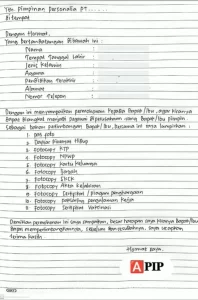 Yth Pimpinan Personalia PT......
Di tempat
Dengan Hormat,
Yang bertandatangan dibawah ini
Nama :
Tempat Tanggal Lahir :
Jenis Kelamin :
Agama :
Pendidikan Terakhir :
Alamat :
Nomor Telepon :
Dengan ini menyampaikan permohonan kepada Bapak/Ibu, agar kiranya
dapat diangkat menjadi pegawai di perusahaan yang Bapak/Ibu pimpin.
Sebagai bahan pertimbangan Bapak/Ibu, bersama ini saya lampirkan :
1. pas foto
2. Daftar Riwayat Hidup
3. Fotocopy KTP
4. Fotocopy NPWP
5. Fotocopy Kartu Keluarga
6. Fotocopy Ijazah
7. Fotocopy SKCK
8. Fotocopy Akta Kelahiran
9. Fotocopy Sertifikat / Piagam penghargaan
10. Fotocopy pengalaman Kerja
11. Fotocopy Sertifikat Vaksinasi
Demikian permohonan ini saya sampaikan, besar harapan saya kiranya Bapak/Ibu
dapat mempertimbangkannya, sebelum dan sesudahnya, saya ucapkan
terima kasih.
Hormat saya,
APIP